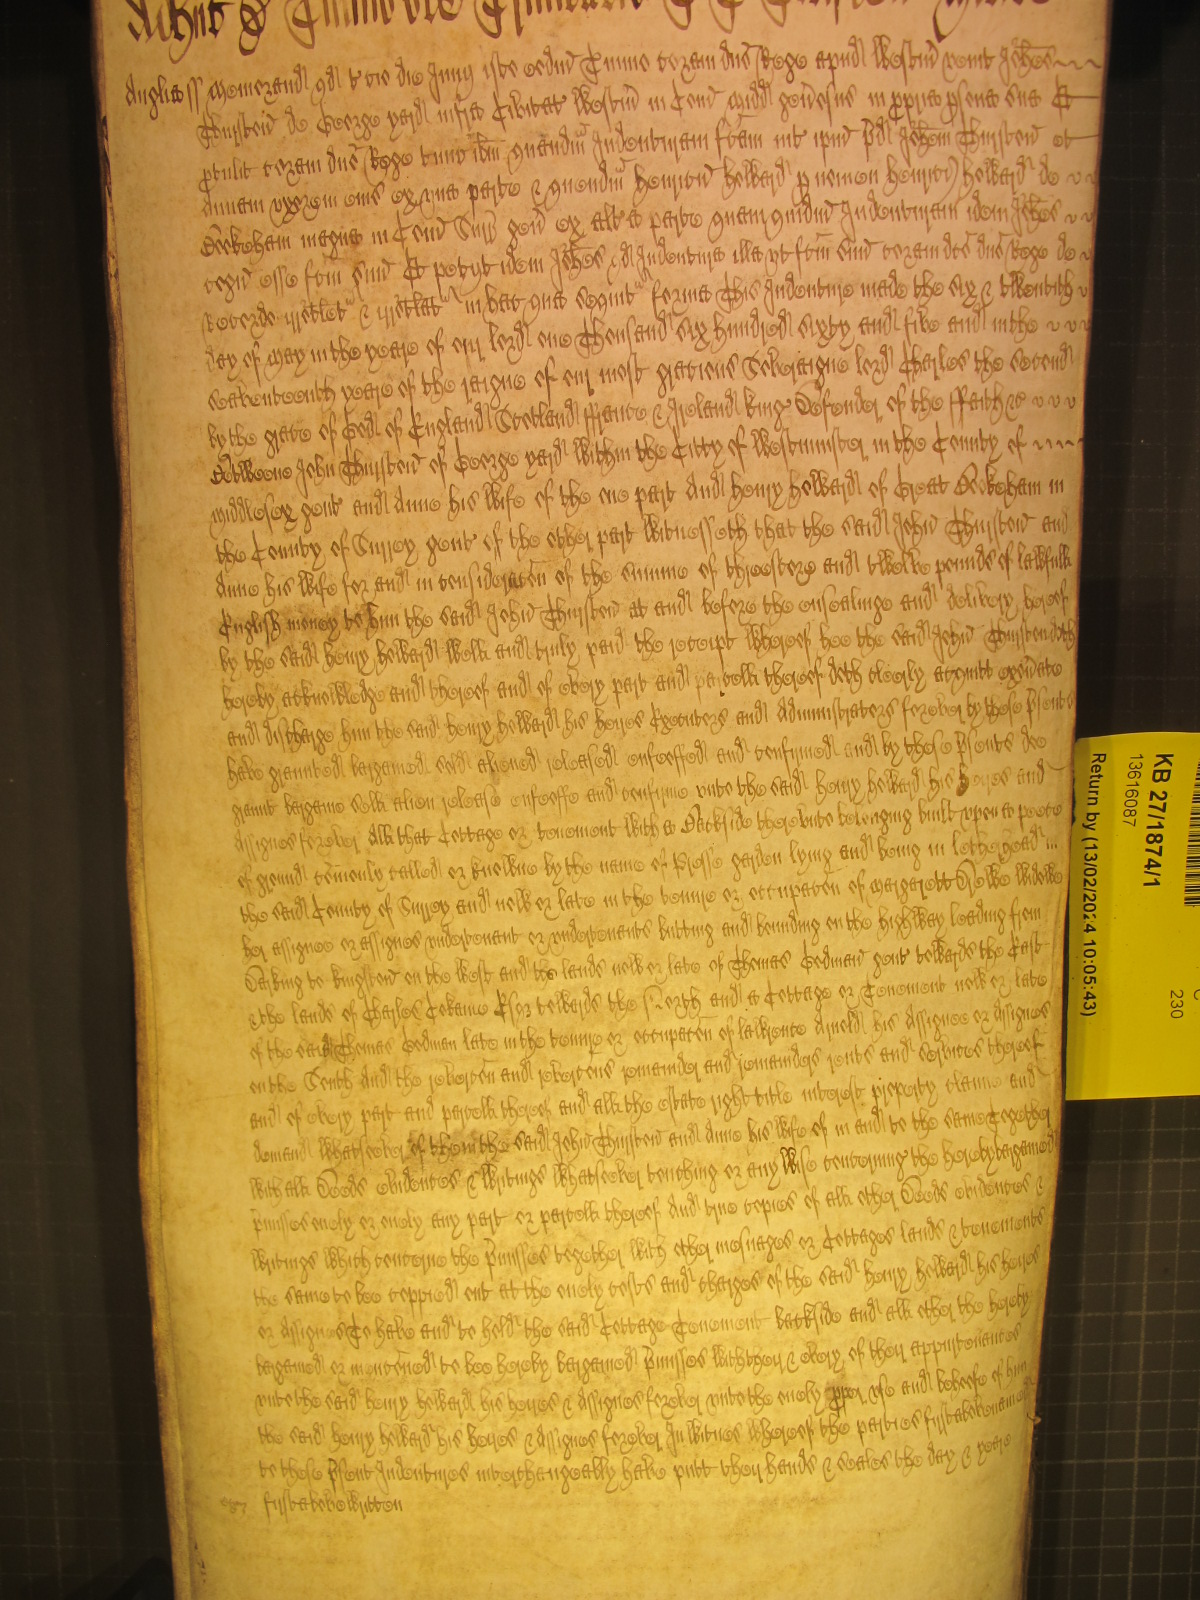 Anglia ss Memorand qd die Junij isto eodm Tmino coram dno Rege apud Westm venit Johes
Thursten de George yard infra Civitat Westm in Com Midd generosus in ppria psona sua Et
ptulit coram dno Rege tunc ibm quandm Indenturam fcam int ipm pd Johem Thursten et
Annam uxorem eius ex una parte & quendm Henricu Heward p nomen Henrici Heward de
Bookeham magna in Com Surr gen ex altera parte quam quidm Indenturam idem Johes
cogn esse fcm suum Et petijt idem Johes qd Indentura illa ut fcm suum coram dco dno Rege de
Recordo irrotlet & irrotlat in hac que sequit forma This Indenture made the six & twentith
day of May in the yeare of our lord one Thousand six hundred sixty and five and in the
seaventeenth yeare of the raigne of our most gratious Soveraigne lord Charles the second
by the grace of God of England Scotland ffrance & Ireland king Defender of the ffaith &c
Betweene John Thursten of George yard within the Citty of Westminster in the County of
Middlesex gent and Anne his wife of the one part And Henry Heward of Great Bookeham in
the County of Surrey gent of the other part Witnesseth that the said John Thursten and
Anne his wife for and in consideracon of the summe of threescore and twelve pounds of lawfull
English money to him the said John Thursten at and before the ensealinge and delivery hereof
by the said Henry Heward well and truly paid the receipt whereof hee the said John Thursten doth
hereby acknowledge and thereof and of every part and parcell thereof doth cleerly acquitt exonerate
and discharge him the said Henry Heward his heires Executors and Administrators forever by these psents
have graunted bargained sold aliened released enfeoffed and confirmed and by these psents doe
graunt bargaine sell alien release enfeoffe and confirme unto the said Henry Heward his heires and
Assignes forever All that Cottage or tenement with a Backside thereunto belonging built upon a peece
of ground comonly called or knowne by the name of Prosse garden lying and being in Letherhead
the said County of Surrey and now or late in the tenure or occupacon of Margarett Rowe widdow
her assignee or assignes undertenant or undertenants butting and bounding on the highway leading from
Darking to Kingston on the West and the lands now or late of Thomas Godman gent towards the East
& the lands of Charles Cokaine Esqr towards the North and a Cottage or Tenement now or late
of the said Thomas Godman late in the tenure or occupacon of lawrence Arnold his Assignee or Assignes
on the South And the revercon and revercons remainder and remainders rents and services thereof
and of every part and parcell thereof and all the estate right title interest property claime and
demand whatsoever of them the said John Thursten and Anne his wife of in and to the same Together
with all Deeds evidences & writings whatsoever touching or any wise concerning the hereby bargained
pmisses onely or onely any part or parcell thereof And true copies of all other Deeds evidences &
writings which concerne the pmisses together with other mesuages or Cottages lands & tenements
the same to bee coppied out at the onely costs and charges of the said Henry Heward his heires
or Assignes To have and to hold the said Cottage Tenement backside and all other the hereby
bargained or mentioned to bee hereby bargained pmisses with their & every of their appurtenances
unto the said Henry Heward his heires & Assignes forever unto the onely pper use and behoofe of him
the said Henry Heward his heires & Assignes forever In witnes whereof the parties first abovenamed
to these psent Indentures interchangeably have putt their hands & seales the day & yeare
first above written
KB 27/1874/1
13616087
230
Return by (13/02/2024 10:05:43)